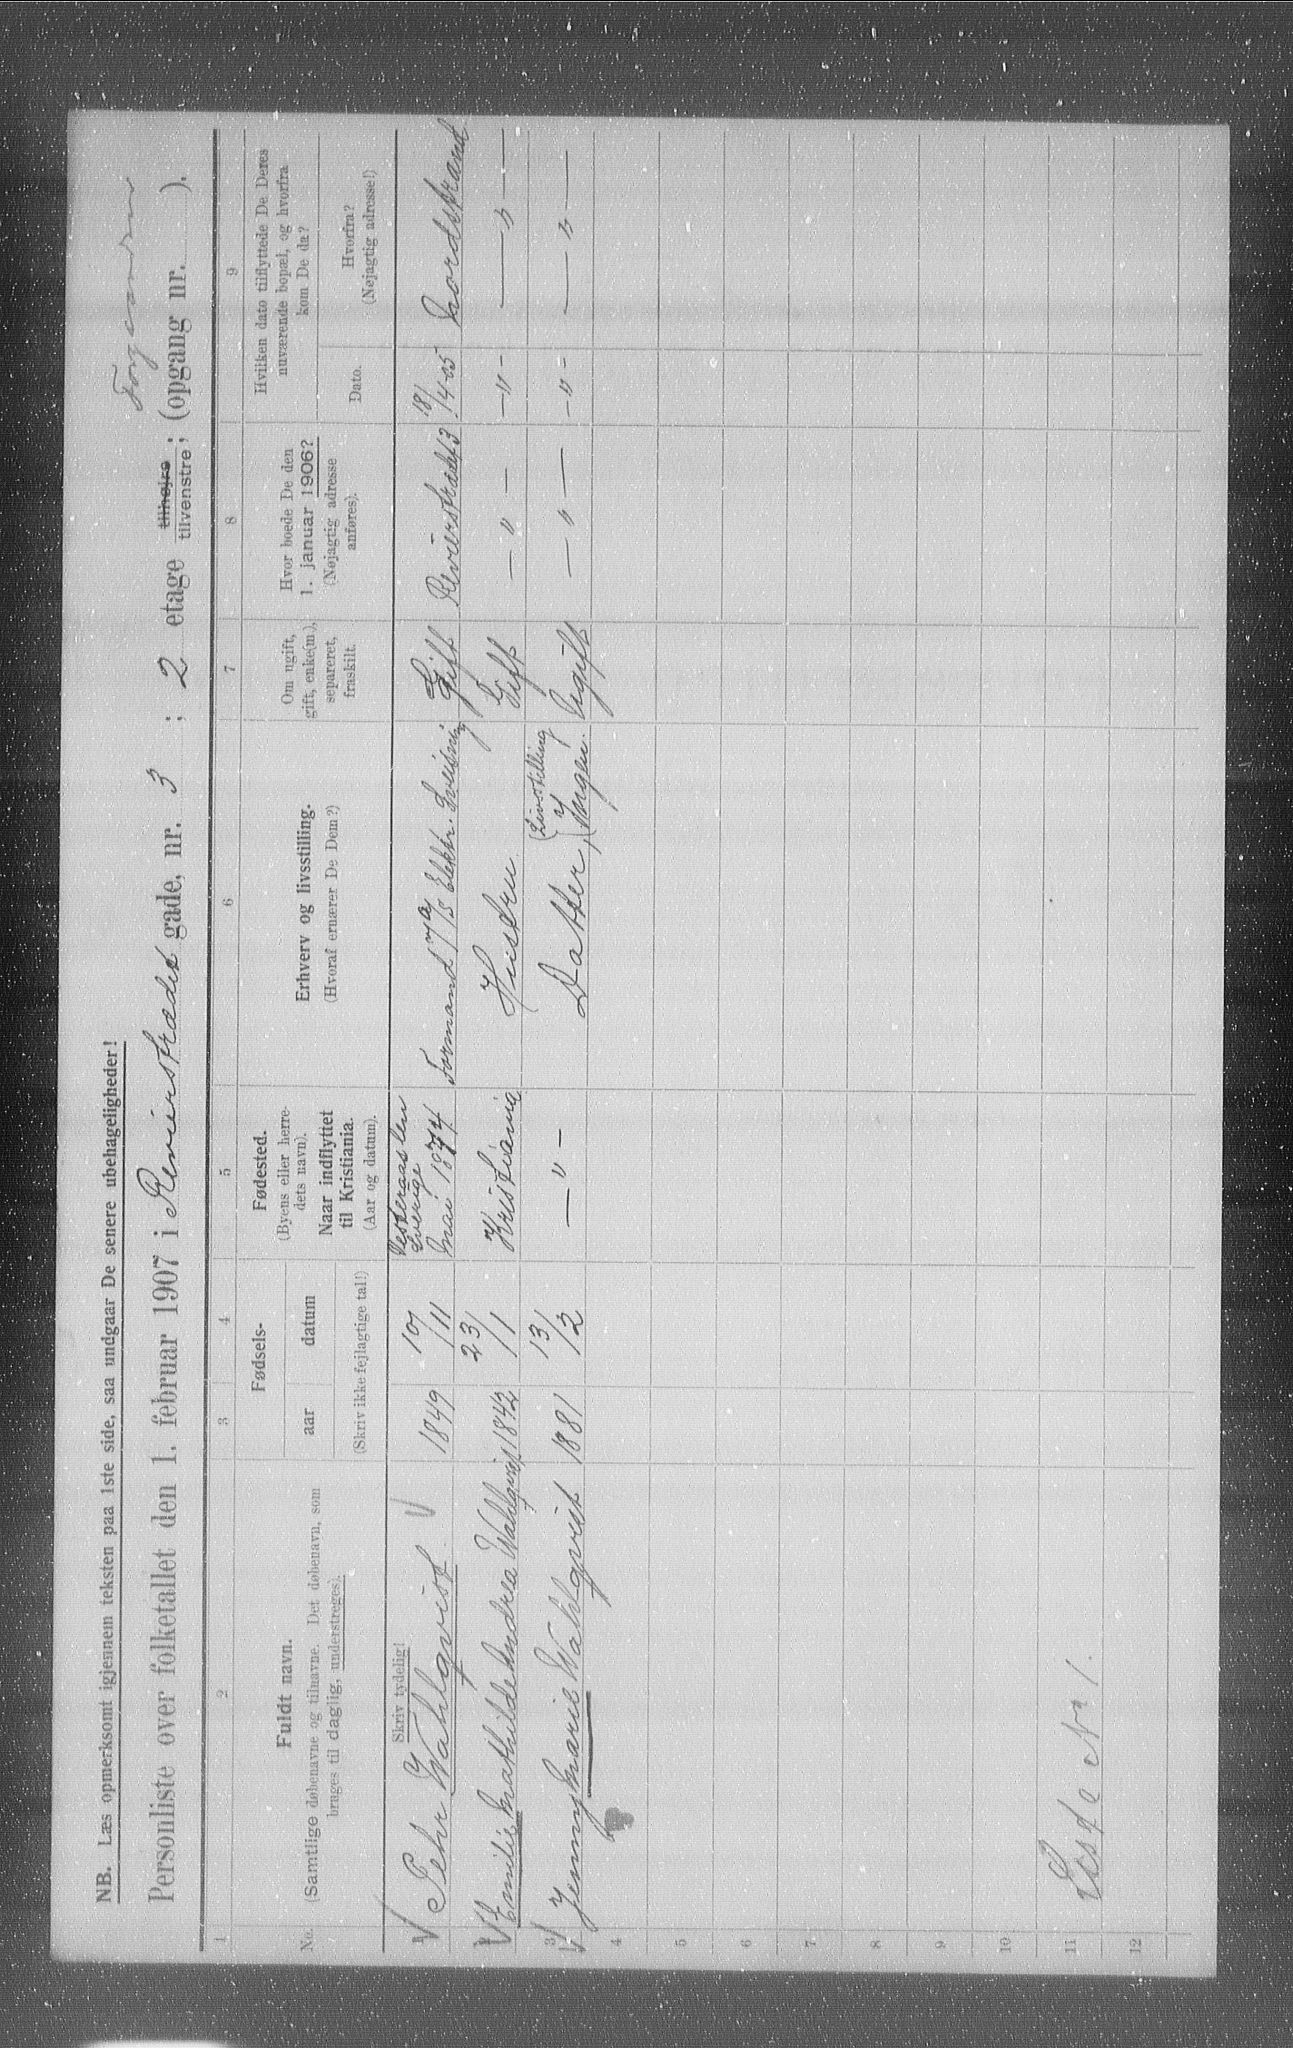 NB. Læs opmerksomt igjennem teksten paa 1ste side, saa undgaar De senere ubehageligheder!
Personliste over folketallet den 1. februar 1907 i Revierstrædet gade, nr. 3; 2 etage tilhøjre tilvenstre; (opgang nr. ).
1 2 3 4 5 6 7 8 9
No.
Fuldt navn.
(Samtlige døbenavne og tilnavne. Det døbenavn, som
bruges til daglig, understreges).
Skriv tydelig!
Fødsels-
aar datum
(Skriv ikke fejlagtige tal!)
Fødested.
(Byens eller herre-
dets navn).
Naar indflyttet
til Kristiania.
(Aar og datum).
Erhverv og livsstilling.
(Hvoraf ernærer De Dem?)
Om ugift,
gift, enke(m.),
separeret,
fraskilt.
Hvor boede De den
1. januar 1906?
(Nøjagtig adresse
anføres).
Hvilken dato tilflyttede De Deres
nuværende bopæl, og hvorfra
kom De da?
Dato.
Hvorfra?
(Nøjagtig adresse!)
1 Pehr Wahlqvist 1849 10/11 Vesteraas len Sverige Mai 1874 Formand Elektr. Gift Revierstrædet 3 18/4 05 Nordstrand
2 Emilie Mathilde Andrea Wahlqvist 1842 23/1 Kristiania Hustru Gift — " — - " - — " —
3 Jenny Marie Wahlqvist 1881 13/2 — " — Datter, (Livsstilling Ingen) Ugift — " — - " - — " —
4
5
6
7
8
9
10
11
12
Liste No 1.